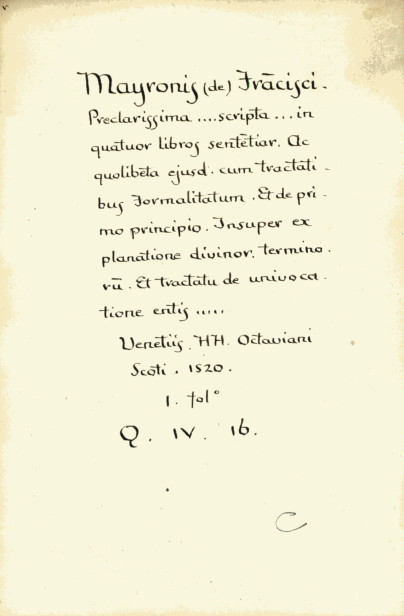 Mayronis (de) Frācisci.
Preclarissima .... scripta ... in
quatuor libros sentētiar. Ac
quolibēta ejusd. cum tractati-
bus Formalitatum. Et de pri-
mo principio. Insuper ex
planatione divinor. termino.
rū. Et tractatu de univoca-
tione entis .....
Venetiis. HH. Octaviani
Scoti. 1520.
1. folº
Q. IV. 16.
C